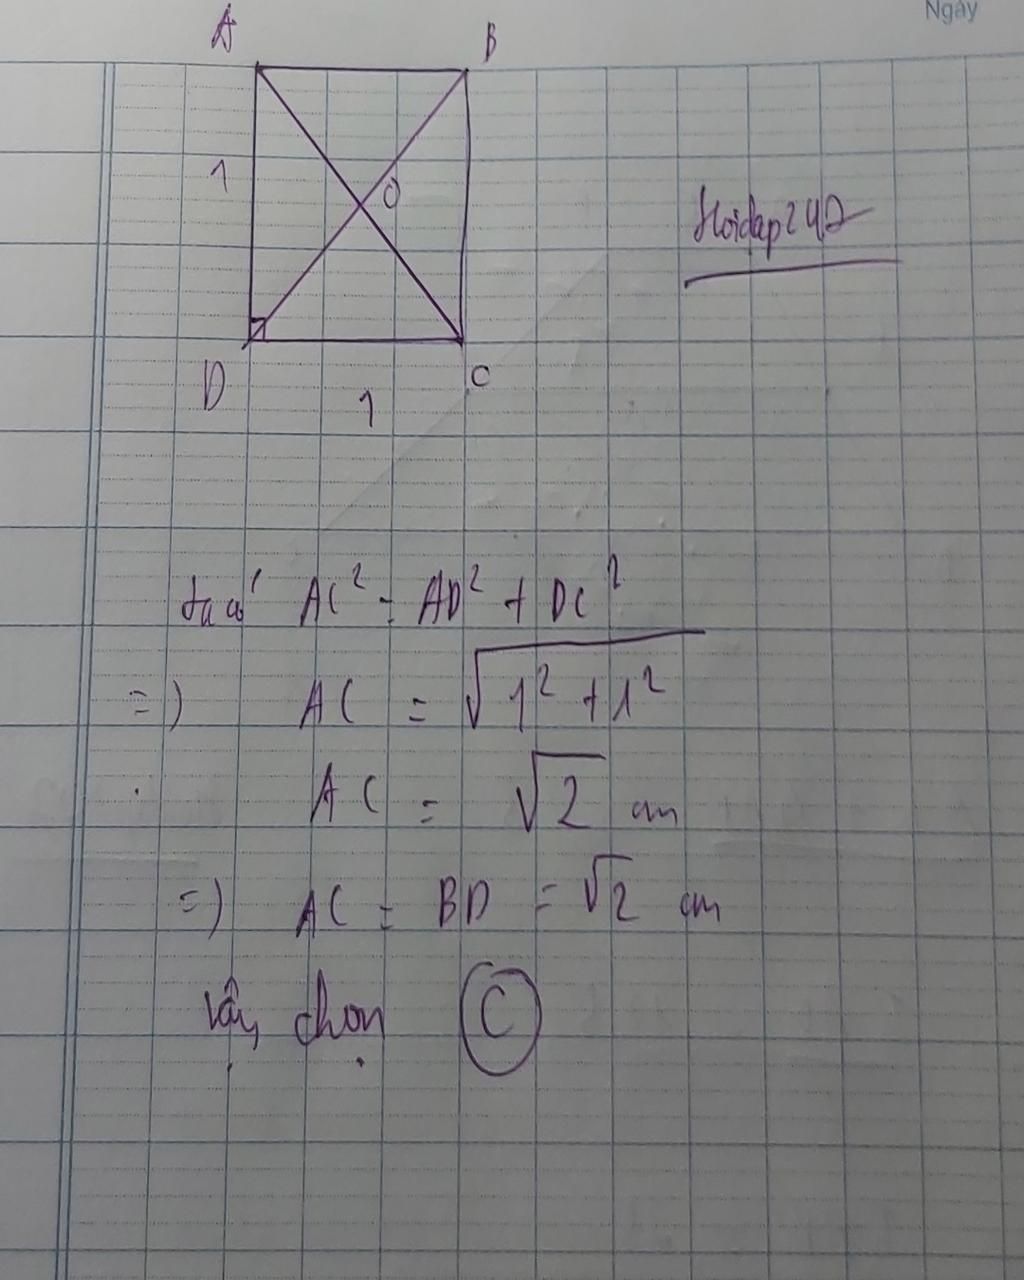 Ngày
A
B
1
O
Hoidap247
D
C
1
ta có AC² = AD² + DC²
=) AC = √1² + 1²
AC = √2 cm
=) AC = BD = √2 cm
Vậy chọn C